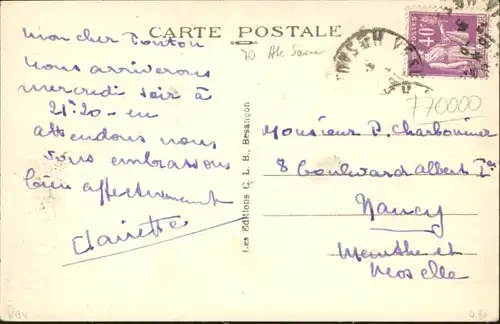 CARTE POSTALE
70 Hte Saone
POSTES
40c
770000
Mon cher Tonton
Nous arriverons
mercredi soir à
21h20 - en
attendons nous
vous embrassons
bien affectueusement
Clairette
Les Editions C. L. B., Besançon
Monsieur P. Charbonnier
8 boulevard Albert 1er
Nancy
Meurthe et
Moselle